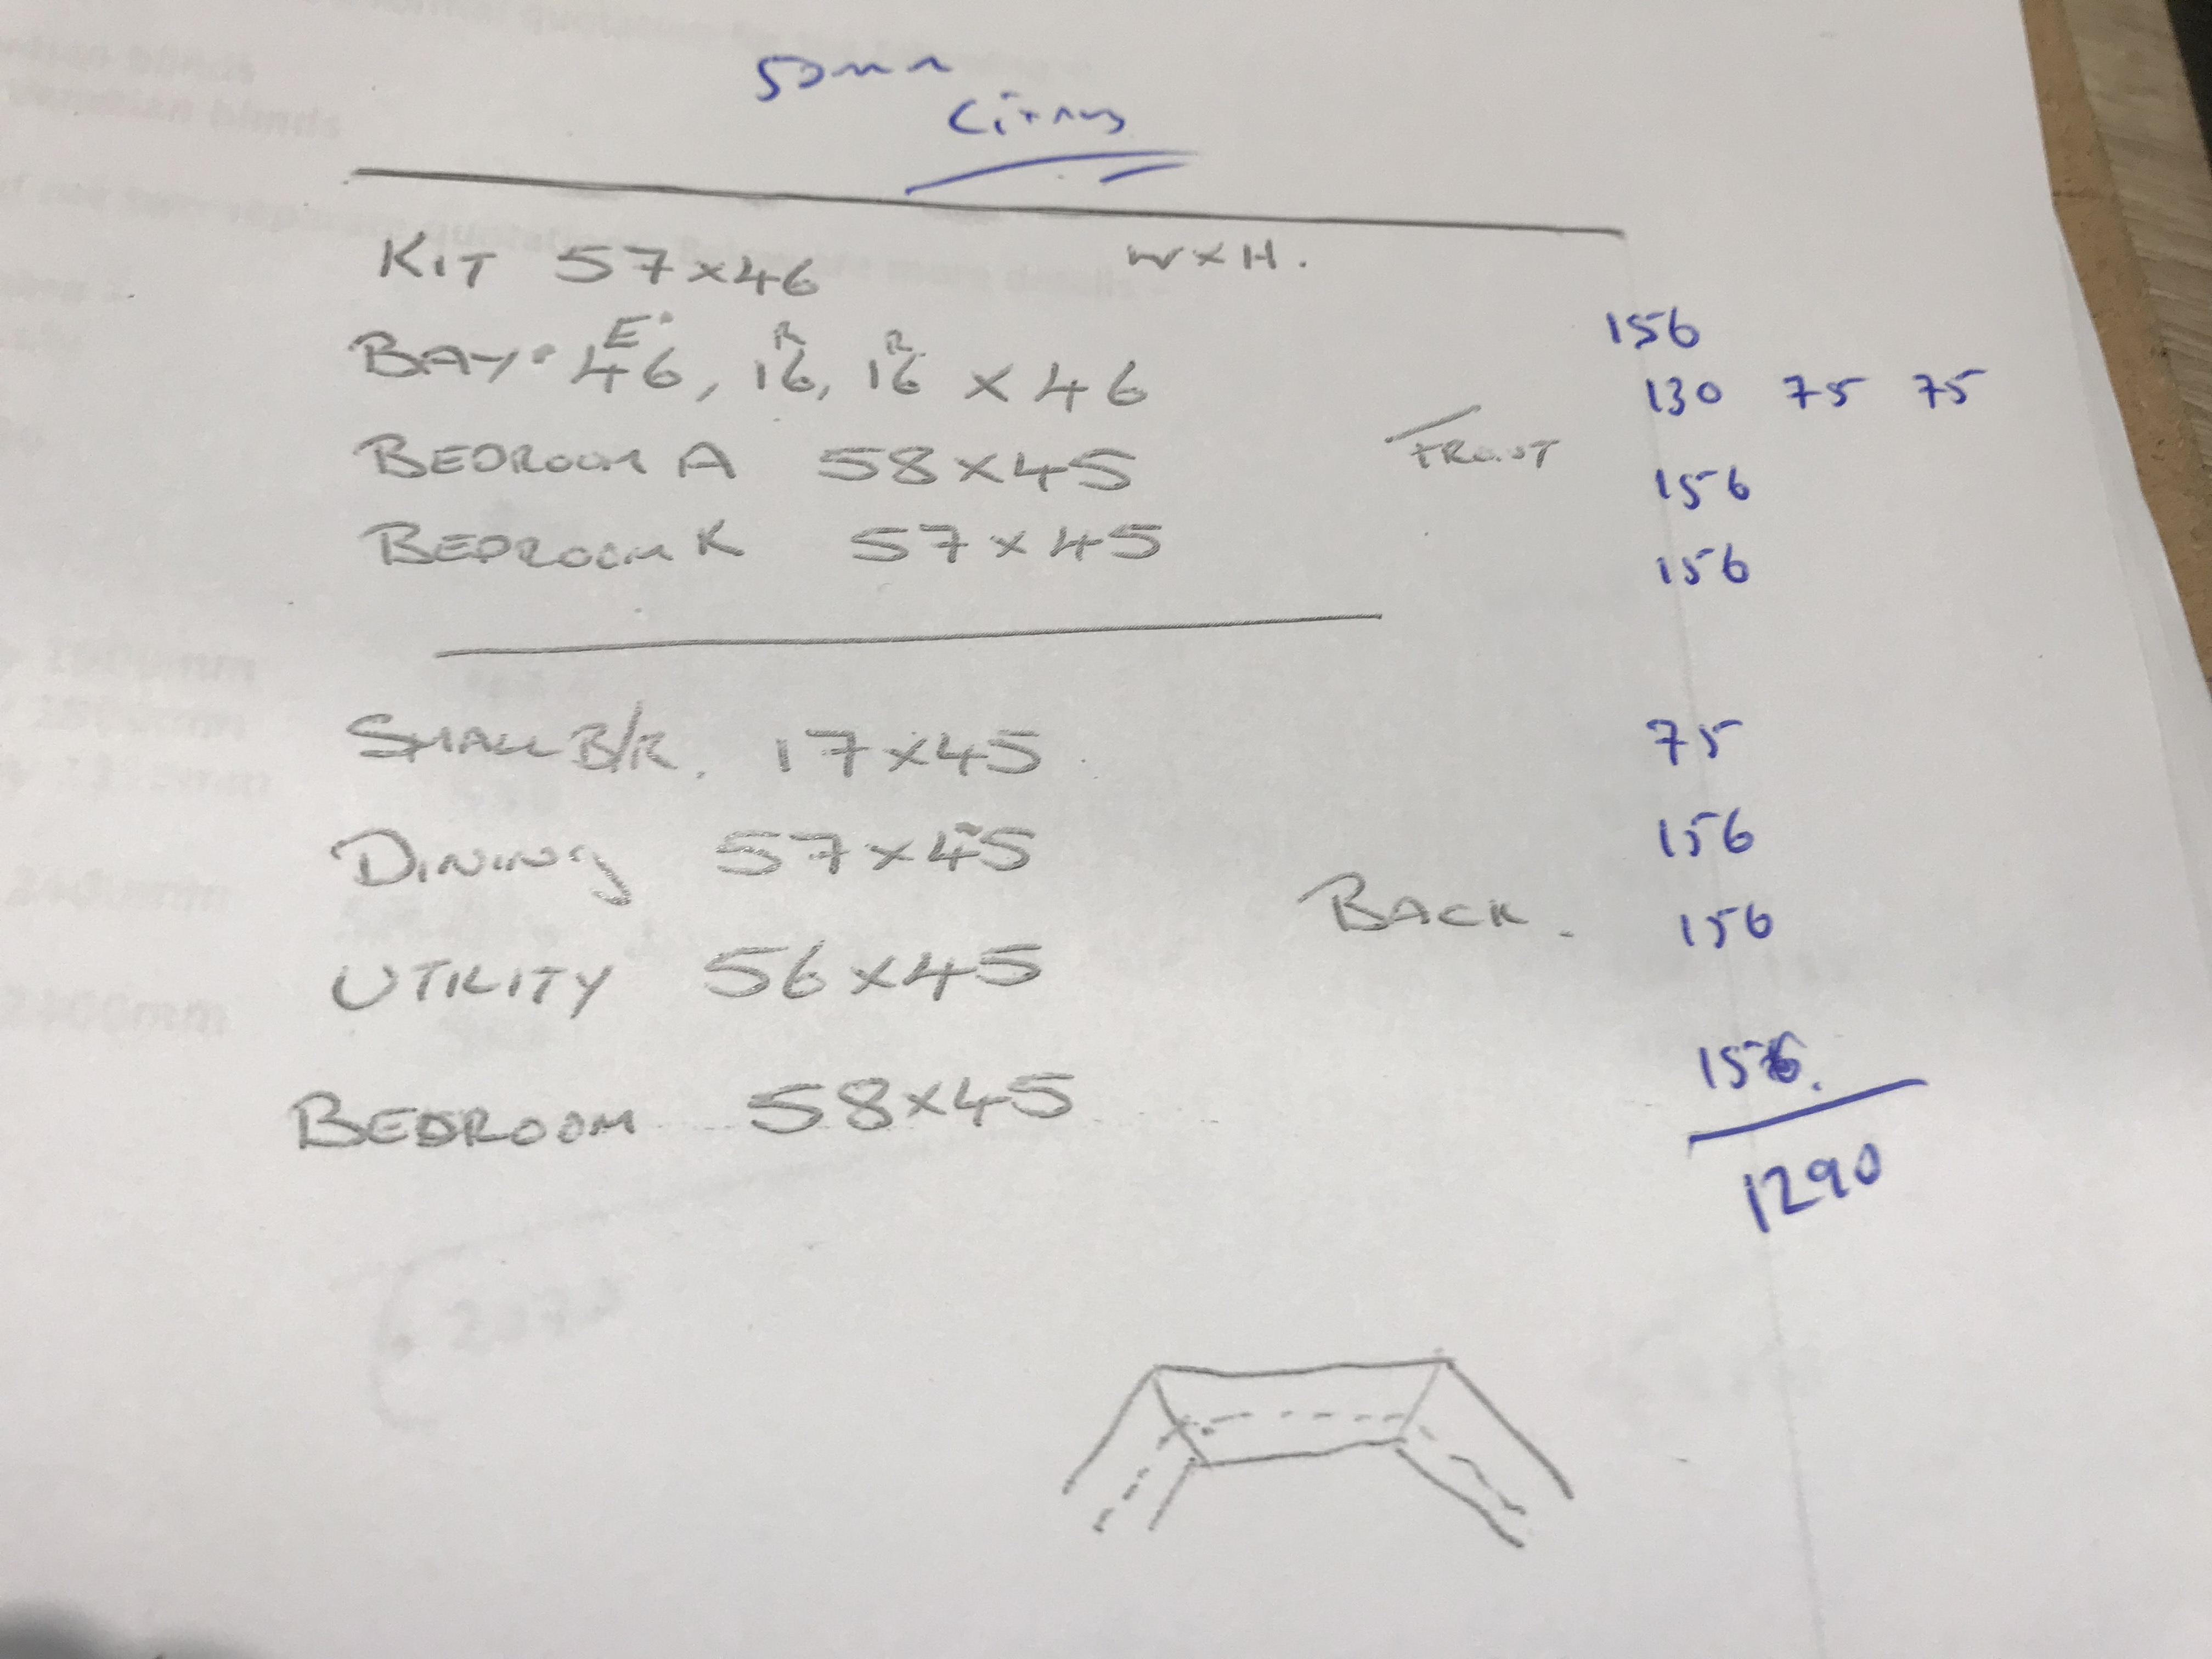 50mm
Citrus
KIT 57x46 WxH.
156
E R R
BAY 46, 16, 16 x 46
130 75 75
BEDROOM A 58x45
FRONT
156
BEDROOM K 57x45
156
SMALL B/R. 17x45
75
DINING 57x45
156
BACK.
156
UTILITY 56x45
156.
BEDROOM 58x45
1290